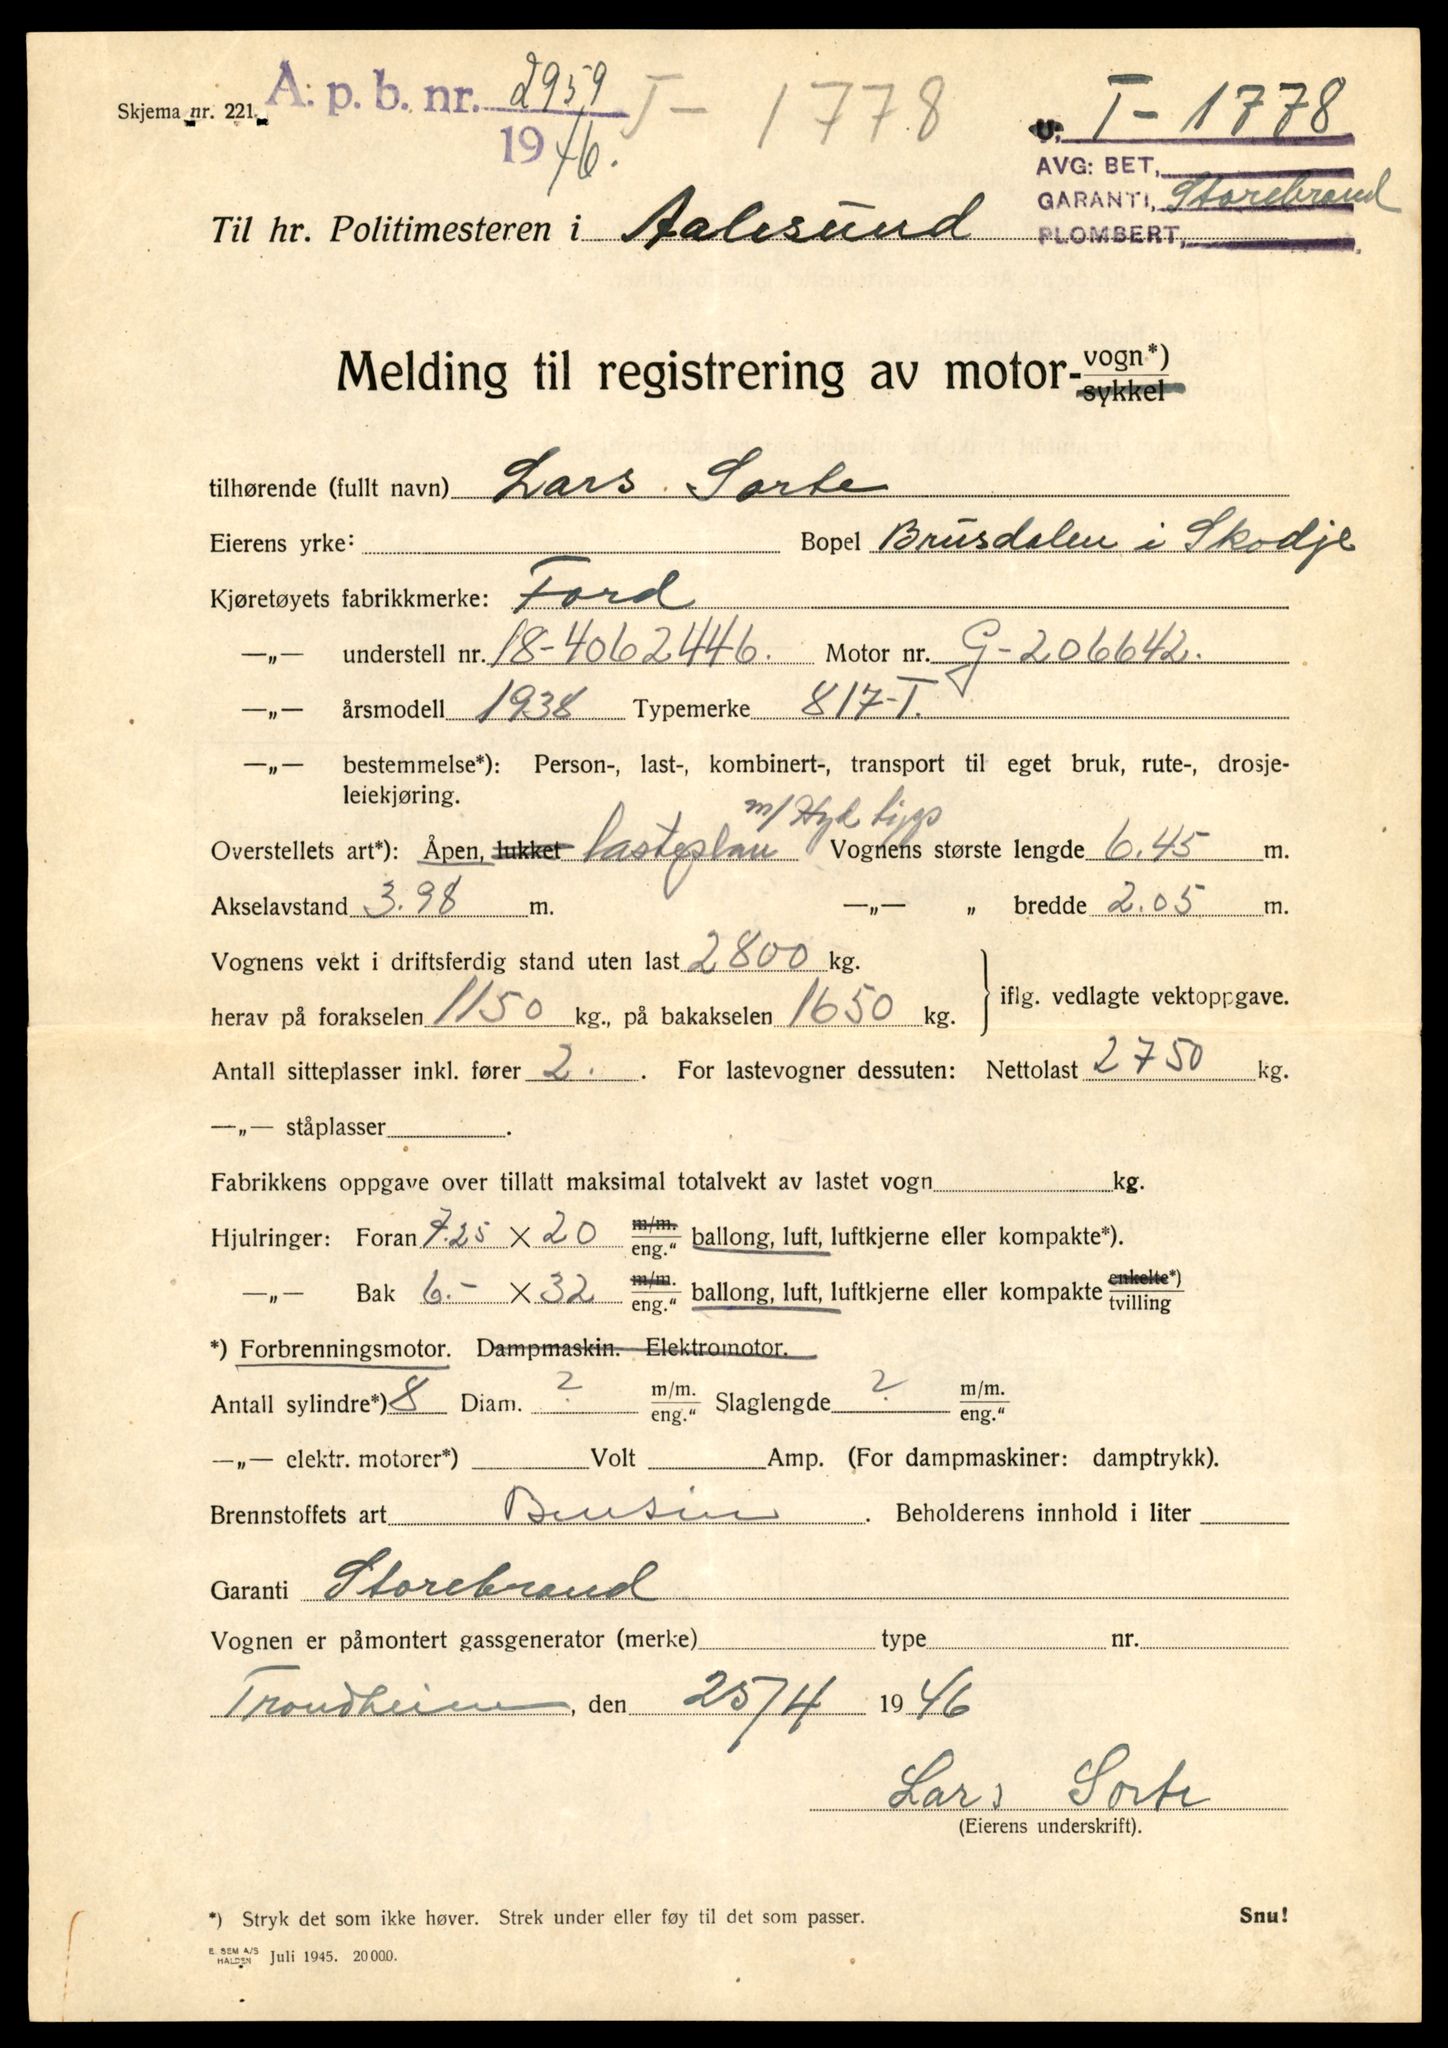 Skjema nr. 221. A: p. b. nr. 2959 T- 1778
1946.
U, T- 1778
AVG: BET,
GARANTI, Storebrand
PLOMBERT,
Til hr. Politimesteren i Aalesund
Melding til registrering av motor- vogn*)
sykkel
tilhørende (fullt navn) Lars Sorte
Eierens yrke: Bopel Brusdalen i Skodje
Kjøretøyets fabrikkmerke: Ford
—„— understell nr. 18-4062446. Motor nr. G-206642.
—„— årsmodell 1938 Typemerke 817-T.
—„— bestemmelse*): Person-, last-, kombinert-, transport til eget bruk, rute-, drosje-
leiekjøring.
m/ Hyd tipp
Overstellets art*): Åpen, lukket lasteplan Vognens største lengde 6.45 m.
Akselavstand 3.98 m. —„— „ bredde 2.05 m.
Vognens vekt i driftsferdig stand uten last 2800 kg.
herav på forakselen 1150 kg., på bakakselen 1650 kg. } iflg. vedlagte vektoppgave.
Antall sitteplasser inkl. fører 2. . For lastevogner dessuten: Nettolast 2750 kg.
—„— ståplasser .
Fabrikkens oppgave over tillatt maksimal totalvekt av lastet vogn kg.
Hjulringer: Foran 7.25 × 20 m/m. eng.“ ballong, luft, luftkjerne eller kompakte*).
—„— Bak 6.- × 32 m/m. eng.“ ballong, luft, luftkjerne eller kompakte enkelte*) tvilling
*) Forbrenningsmotor. Dampmaskin. Elektromotor.
Antall sylindre*) 8 Diam. ? m/m. eng.“ Slaglengde ? m/m. eng.“
—„— elektr. motorer*) Volt Amp. (For dampmaskiner: damptrykk).
Brennstoffets art Bensin . Beholderens innhold i liter
Garanti Storebrand
Vognen er påmontert gassgenerator (merke) type nr.
Trondheim, den 25/4 1946
Lars Sorte
(Eierens underskrift).
*) Stryk det som ikke høver. Strek under eller føy til det som passer. Snu!
E. SEM A/S HALDEN Juli 1945. 20 000.